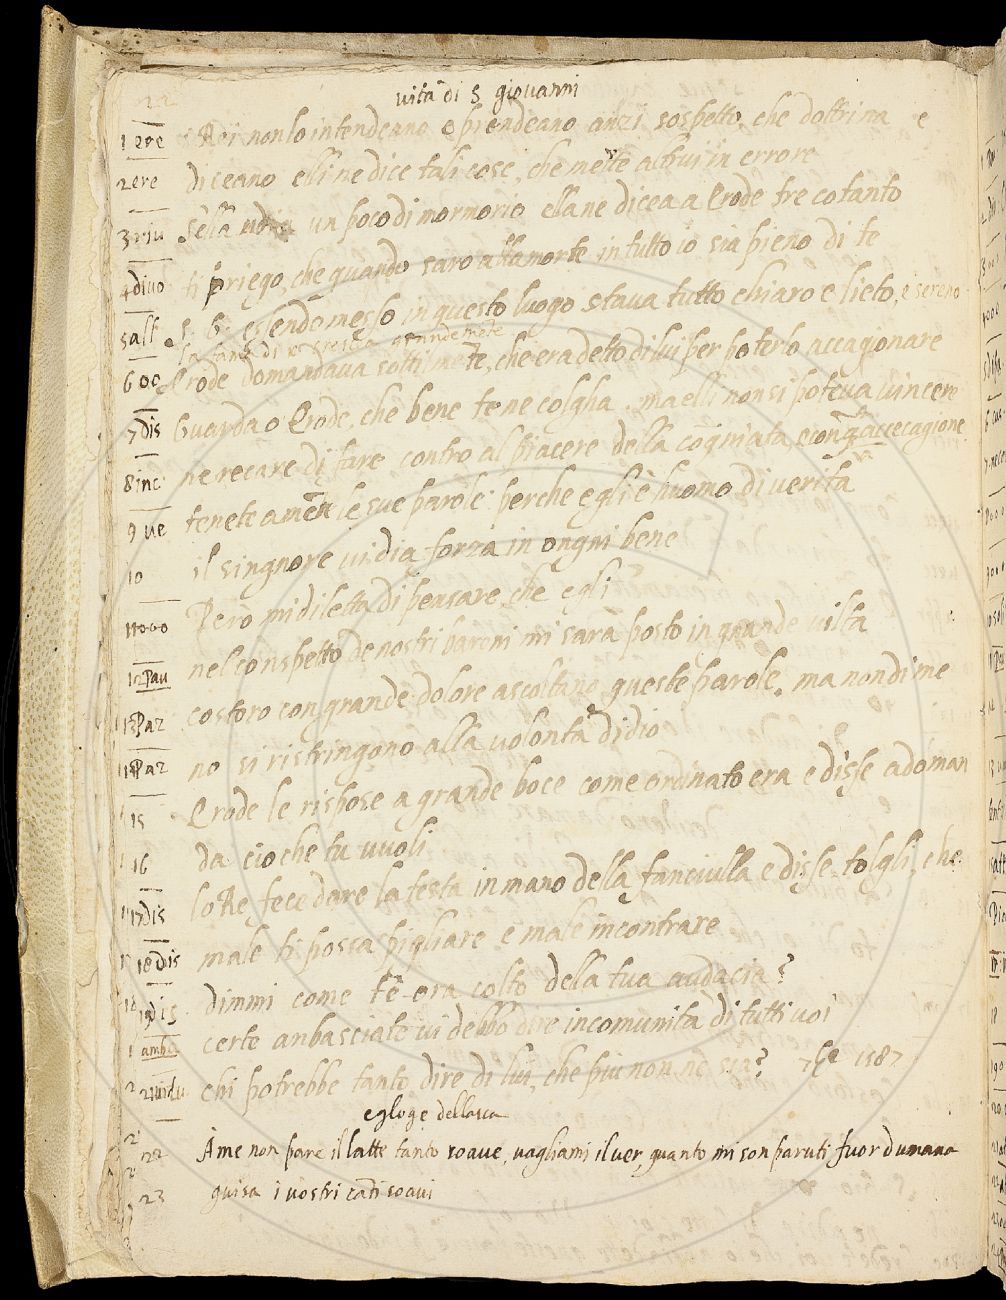 vita di S giovanni
1 ere i Rei non lo intendeano e prendeano anzi sospetto, che dottrina e
2 ere diceano elli ne dice tali cose, che mette altrui in errore
3 sella un poco di mormorio ella ne dicea a Erode tre cotanto
4 diuo ti priego, che quando saro alla morte in tutto io sia pieno di te
5 all S. G. essendo messo in questo luogo stava tutto chiaro e lieto, e sereno
la fama di crescia grandemete
6 oc Erode domandava sottilmete, che era detto di lui per poterlo accagionare
7 dis Guarda o Erode, che bene te ne colgha. ma elli non si poteva vincere
8 inc ne recare di fare contro al piacere della cogniata,
9 ue tenete a mete le sue parole: perche egli è huomo di verita
10 il singnore vi dia forza in ongni bene
11 Però mi diletta di pensare, che egli
12 pau nel conspetto de nostri baroni mi sara posto in grande vilta
13 Paz costoro con grande dolore ascoltano queste parole. ma nondime
14 Paz no si ristringono alla volontà di dio
15 Erode le rispose a grande boce come ordinato era e disse adoman
16 da cio che tu vuoli
17 dis lo Re fece dare la testa in mano della fanciulla e disse tolgli, che
18 dis male ti possa pigliare e male incontrare
19 dis dimmi come te era colto della tua audacia?
amb certe anbasciate vi debbo dire in comunità di tutti voi
21 chi potrebbe tanto dire di lui, che piu non ne sia? 1587
egloge della
22 A me non pare il latte tanto soave, vagliami il ver, quanto mi son paruti fuor d umana
23 guisa i vostri cati soavi